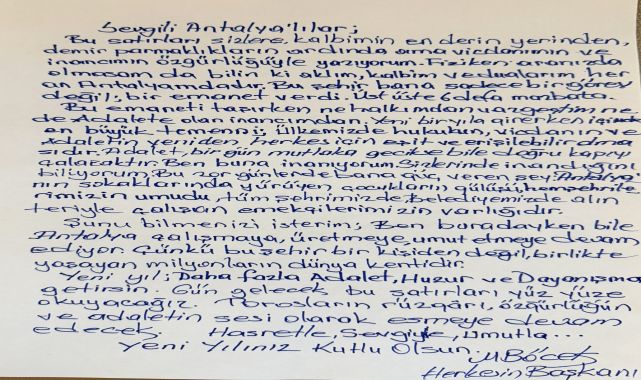 Sevgili Antalya'lılar;
Bu satırları sizlere, kalbimin en derin yerinden,
demir parmaklıkların ardında ama vicdanımın ve
inancımın özgürlüğüyle yazıyorum. Fiziken aranızda
olmasam da bilin ki aklım, kalbim ve dualarım her
an Antalyamdadır. Bu şehir bana sadece bir görev
değil, bir emanet verdi. Üst üste 6 defa mazbata.
Bu emaneti taşırken ne halkımdan vazgeçtim ne
de Adalete olan inancımdan. Yeni bir yıla girerken içimde
en büyük temenni; Ülkemizde hukukun, vicdanın ve
Adaletin yeniden herkes için eşit ve erişilebilir olma
sıdır. Adalet, bir gün mutlaka gecikse bile doğru kapıyı
çalacaktır. Ben buna inanıyorum. Sizlerinde inandığını
biliyorum. Bu zor günlerde bana güç veren şey; Antalya'
nın sokaklarında yürüyen çocukların gülüşü, hemşehrile
rimizin umudu, tüm şehrimizde Belediyemizde alın
teriyle çalışan emekçilerimizin varlığıdır.
Şunu bilmenizi isterim; Ben buradayken bile
Antalya çalışmaya, üretmeye, umut etmeye devam
ediyor. Çünkü bu şehir bir kişiden değil, birlikte
yaşayan milyonların dünya kentidir.
Yeni yıl; Daha fazla Adalet, Huzur ve Dayanışma
getirsin. Gün gelecek bu satırları yüz yüze
okuyacağız. Torosların rüzgârı, özgürlüğün
ve adaletin sesi olarak esmeye devam
edecek. Hasretle, Sevgiyle, Umutla...
Yeni Yılınız Kutlu Olsun. M Böcek
Herkesin Başkanı